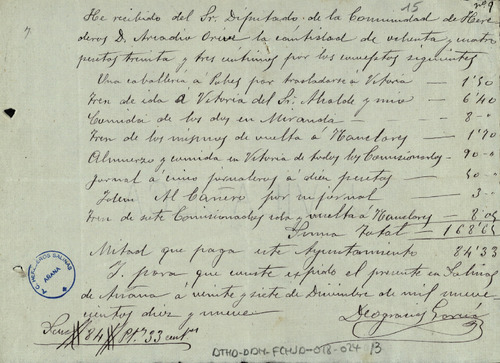 15 nº 9
7.
He recibido del Sr. Diputado de la Comunidad de Here-
deros D. Arcadio Orive la cantidad de ochenta y cuatro
pesetas treinta y tres céntimos por los conceptos siguientes
Una caballería á Pobes por trasladarse á Vitoria 1'50
Tren de ida á Vitoria del Sr. Alcalde y mio 6'40
Comida de los dos en Miranda 8-"
Tren de los mismos de vuelta á Nanclares 1'70
Almuerzo y comida en Vitoria de todos los Comisionados 90-"
Jornal á cinco jornaleros á diez pesetas 50-"
Idem Al Cañero por un jornal 3-"
Tren de siete Comisionados ida y vuelta á Nanclares 8'05
Suma Total = 168'65
Mitad que paga este Ayuntamiento 84'33
Y para que conste expido el presente en Salinas
de Añana á veinte y siete de Diciembre de mil nueve
cientos diez y nueve
Son # 84 # Pts. 33 cents
Deogracias
A.C. HEREDEROS SALINAS
AÑANA
DTHD-DDH-FCHJD-018-024 13